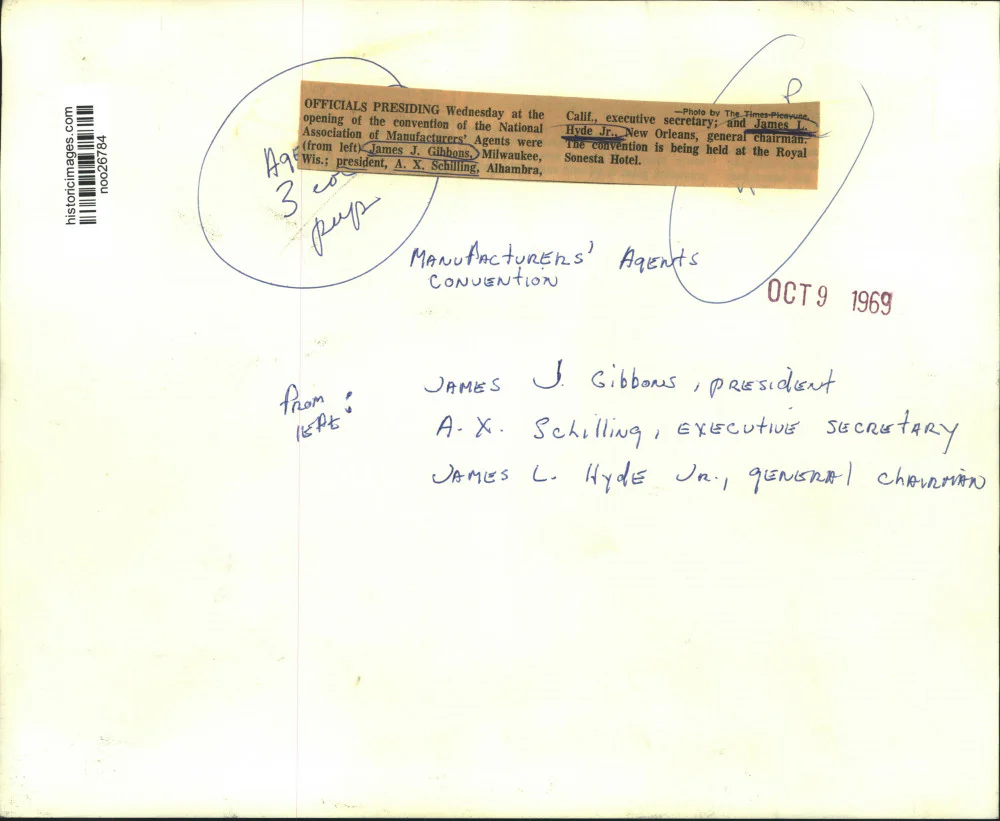 historicimages.com
noo26784
OFFICIALS PRESIDING Wednesday at the
opening of the convention of the National
Association of Manufacturers' Agents were
(from left) James J. Gibbons, Milwaukee,
Wis.; president, A. X. Schilling, Alhambra,
—Photo by The Times-Picayune.
Calif., executive secretary; and James L.
Hyde Jr., New Orleans, general chairman.
The convention is being held at the Royal
Sonesta Hotel.
3
P
MANUFACTURERS' AgENtS
CONVENtION
OCT 9 1969
From
JAMES J. Gibbons, PRESIdENT
A. X. Schilling, EXECUTIVE SECREtARY
JAMES L. HydE JR., gENERAl ChAIRMAN